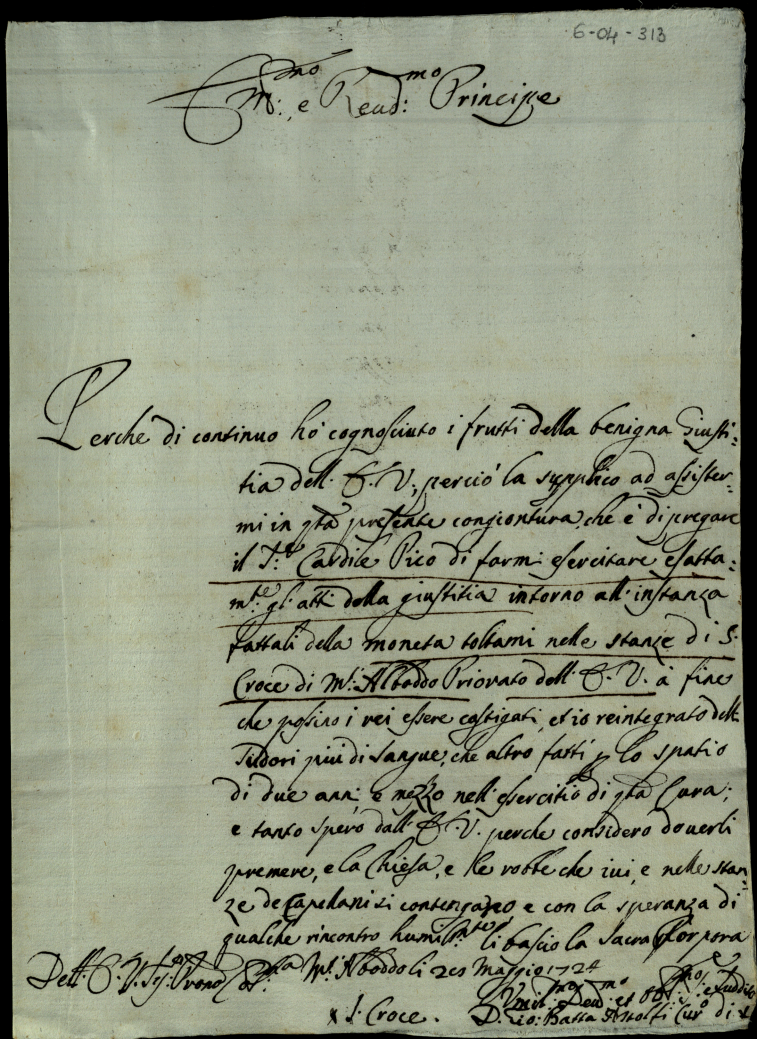 6-04-313
Em:mo e Reud:mo Principe
Perche di continuo hò cognosciuto i frutti della benigna Giusti:
tia dell' E. V., perciò la supplico ad assister-
mi in qta presente congiontura, che è di pregare
il S.r Cardile Pico di farmi esercitare esatta:
mte gl'atti della giustitia intorno all'instanza
fattali della moneta toltami nelle stanze di S.
Croce di M.te Alboddo Priorato dell' E. V. à fine
che possino i rei essere castigati, et io reintegrato delli
sudori più di sangue, che altro fatti p lo spatio
di due anni, e mezzo nell'esercitio di qta Cura;
e tanto spero dall' E. V. perche considero douerli
premere, e la Chiesa, e le robbe che iui, e nelle stan-
ze de Capellani si contengano e con la speranza di
qualche rincontro humilmte li bascio la Sacra Porpora
Dell' E. V. M.te Alboddo li 20 Maggio 1724
Umil:mo Deu:mo et Obl:mo Ser:e e suddito
x S. Croce. D. Gio: Batta Curo di x